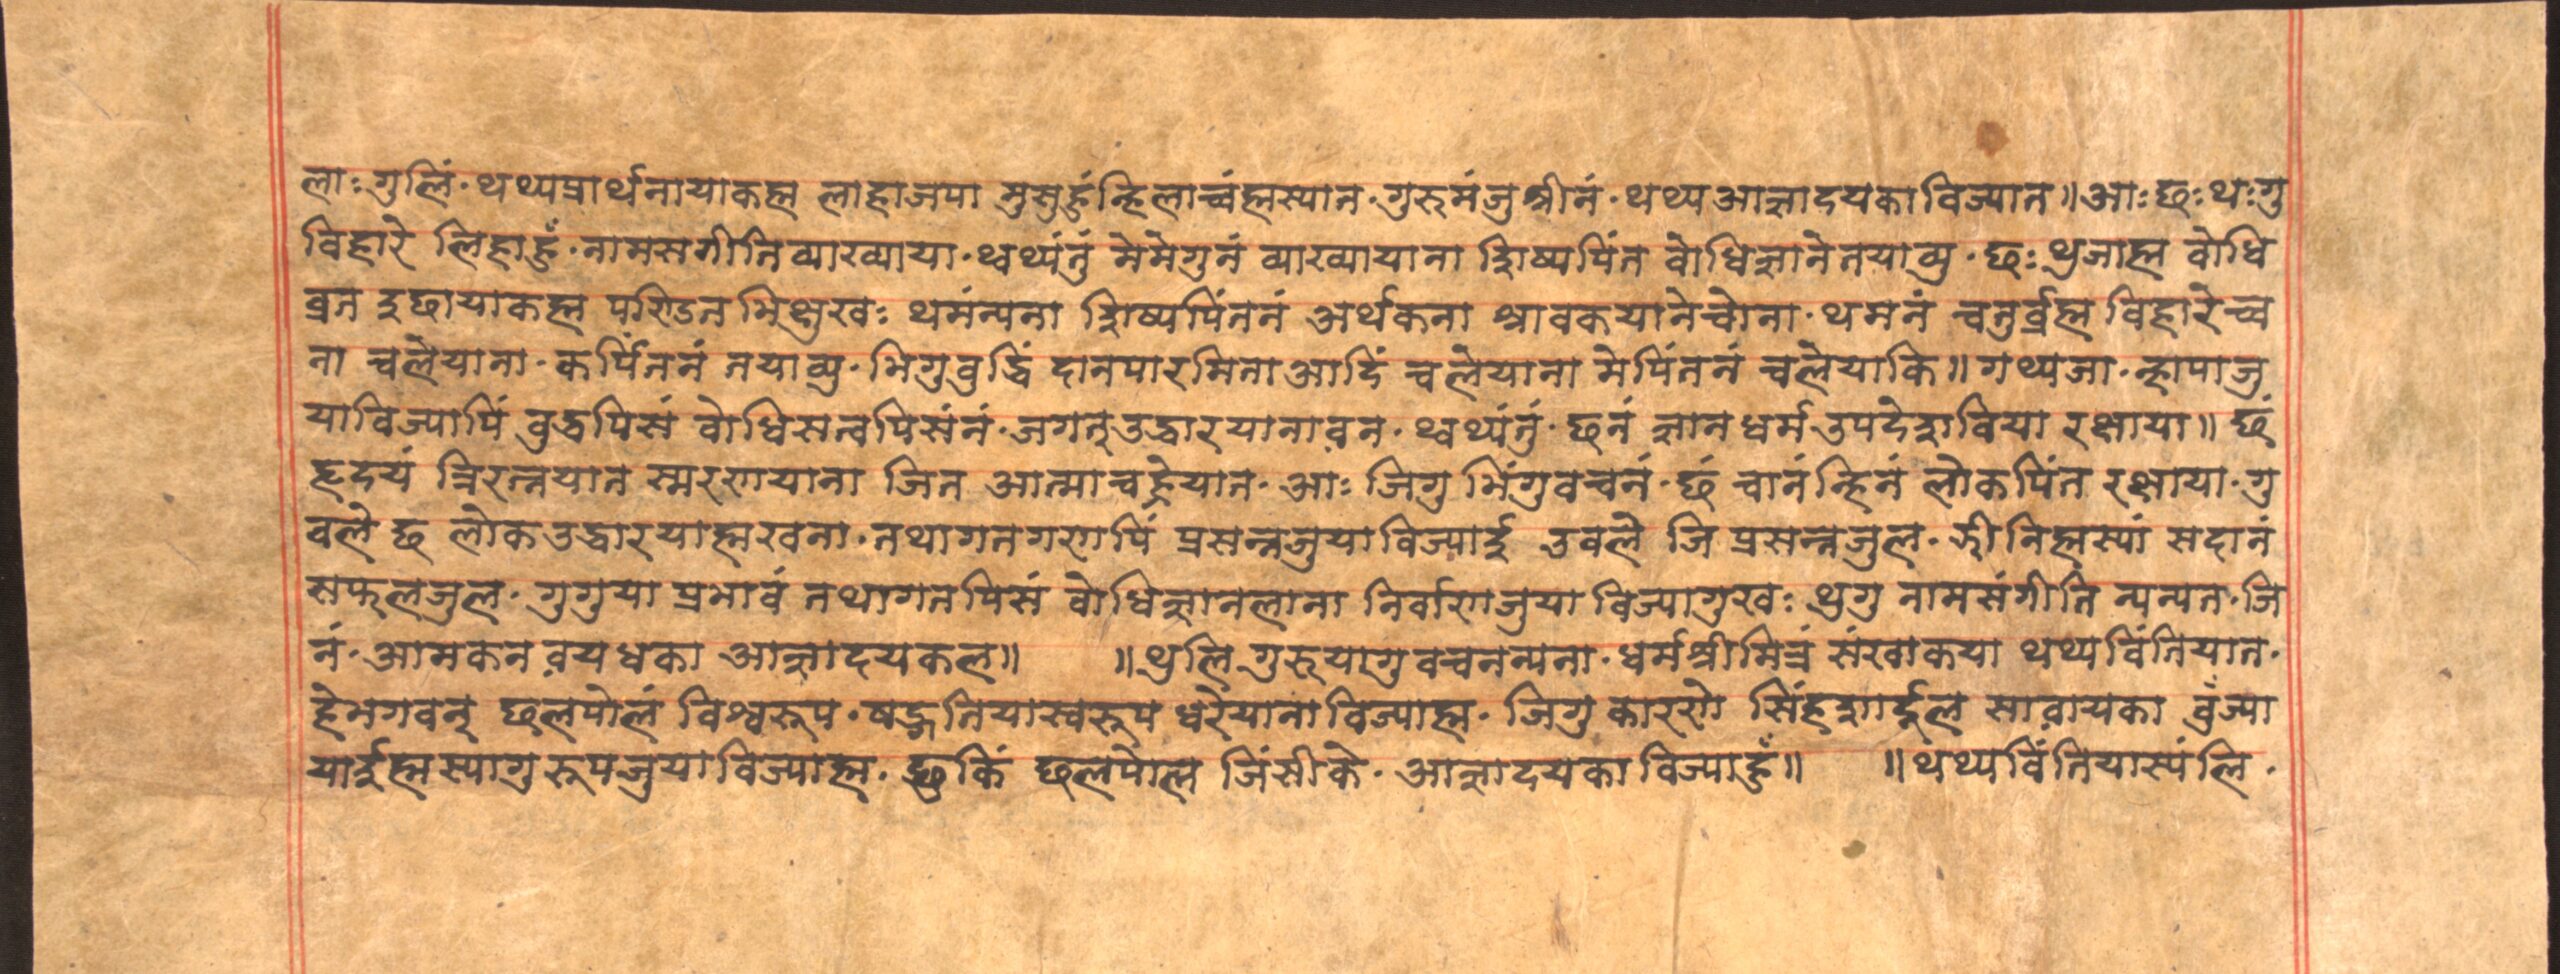 लाः गुलिं· थथ्यप्रार्थनायाकह्म लाहाजपा मुसुहुंन्हिलाच्वंह्मस्यान· गुरुमंजुश्रीनं· थथ्यआज्ञादयकाविज्यान॥ आः छः थःगु
विहारे लिहाहुँ· नामसगीतिव्याख्याया· थ्वथ्यंतुं मेमेगुनं व्याख्यायाना शिष्यपिंत वोधिज्ञाने तयाव्यु· छः थुजाह्म वोधि
व्रत दुछायाकह्म पण्डित भिक्षुखः थमंन्यना शिष्यपिंतनं अर्थकना श्रावकयानेचोना· थमनं चतुर्व्रह्म विहारेच्व
ना चलेयाना· कर्पिंतनं तयाव्यु· भिगुवुद्धिं दानपारमिताआदिं चलेयाना मेपिंतनं चलेयाकि॥ गथ्यजा· न्हापाजु
याविज्यापिं वुद्धपिसं वोधिसत्वपिसंनं· जगत्उद्धारयानावन· थ्वथ्यंतुं· छनं ज्ञानधर्मउपदेशविया रक्षायाया॥ छं
हृदयं त्रिरत्नयात स्मरणयाना जित आत्माच्वहेयात· आः जिगु भिंगुवचनं· छं चानंन्हिनं लोकपिंत रक्षायाया· गु
वले छ लोकउद्धारयाह्मखना· तथागतगणपिं प्रसन्नजुयाविज्याई उवले जि प्रसन्नजुल· झीनिह्मस्यां सदानं
सफलजुल· गुगुया प्रभावं तथागतपिसं वोधिज्ञानलाना निर्वाणजुया विज्यागुखः थुगु नामसंगीति न्यन्यत· जि
नं· आमकन वयधका आज्ञादयकल॥ ॥ थुलि गुरूयागु वचनन्यना· धर्मश्रीमित्रं संखाकया थथ्यविंतियात·
हेभगवन् छलपोलं विश्वरूप· षद्गतियास्वरूप धरेयानाविज्याह्म· जिगु कारणे सिंहशार्दूल सावायका वुंज्या
यार्इह्मस्यागुरूपजुयाविज्याह्म· छुकिं छलपोल जिंसीके· आज्ञादयकाविज्याहुँ॥ ॥ थथ्यविंतियास्यंलि·